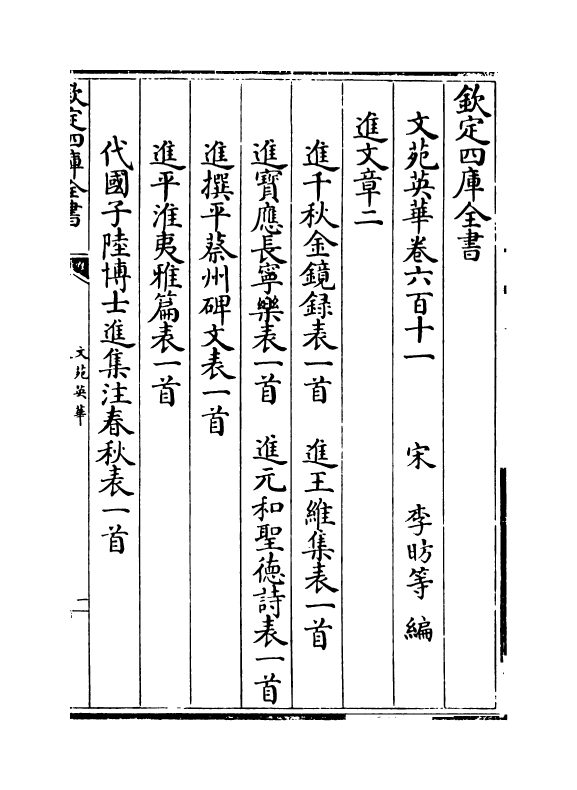 欽定四庫全書
文苑英華卷六百十一　宋　李昉等　編
進文章二
進千秋金鏡録表一首　進王維集表一首
進寶應長寧樂表一首　進元和聖德詩表一首
進撰平蔡州碑文表一首
進平淮夷雅篇表一首
代國子陸博士進集注春秋表一首
欽定四庫全書
文苑英華